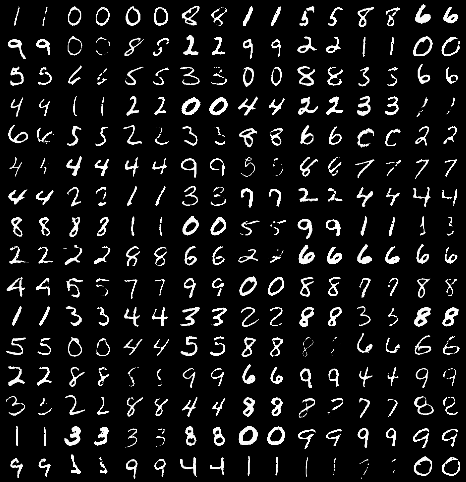 1 1 0 0 0 0 8 8 1 1 5 5 8 8 6 6
9 9 0 0 8 8 2 2 9 9 2 2 1 1 0 0
5 5 6 6 5 5 3 3 0 0 8 8 3 5 6 6
9 9 1 1 2 2 0 0 4 4 2 2 3 3 1 1
6 6 5 5 2 2 3 3 8 8 6 6 0 0 2 2
4 4 4 4 4 4 9 9 5 5 8 8 7 7 7 7
4 4 2 2 1 1 3 3 7 7 2 2 4 4 4 4
8 8 8 8 1 1 0 0 5 5 9 9 1 1 1 3
2 2 2 2 8 8 6 6 2 2 6 6 6 6 6 6
4 4 5 5 7 7 9 9 0 0 8 8 7 7 8 8
1 1 3 3 4 4 3 3 2 2 8 8 3 3 8 8
5 5 0 0 4 4 5 5 8 8 8 6 6 6 6
2 2 8 8 5 5 9 9 6 6 9 9 4 4 9 9
3 3 2 2 8 8 4 4 8 8 8 7 7 8 8
1 1 3 3 3 3 8 8 0 0 9 9 9 9 9 9
9 9 3 3 9 9 4 4 1 1 1 1 7 7 0 0